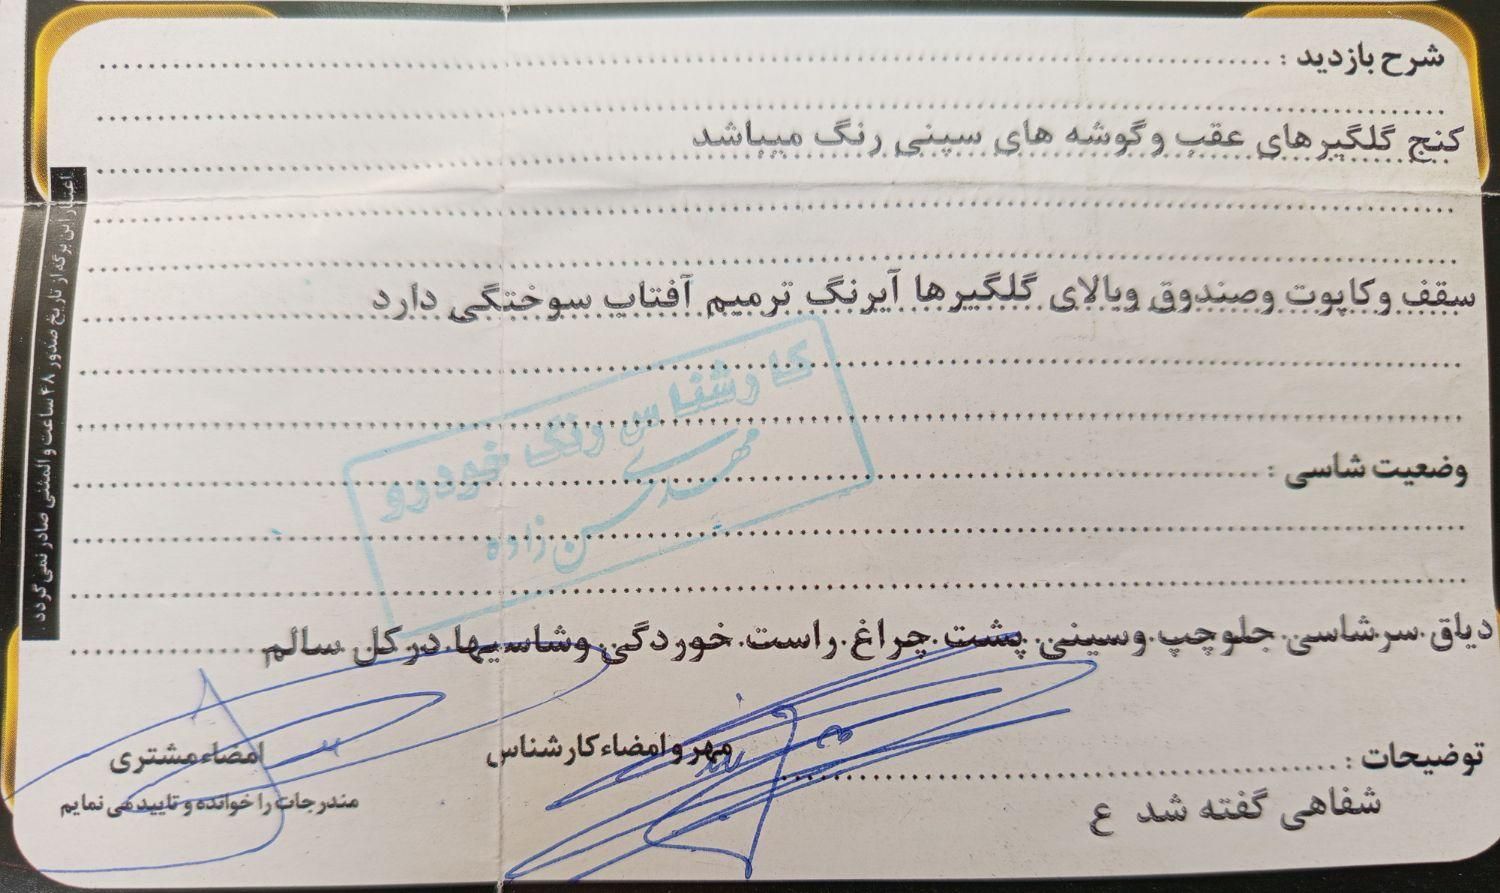 شرح بازدید :
کنج گلگیرهای عقب وگوشه های سینی رنگ میباشد
سقف وکاپوت وصندوق وبالای گلگیرها آبرنگ ترمیم آفتاب سوختگی دارد
کارشناس رنگ خودرو
مهدی حسن زاده
وضعیت شاسی :
دیاق سرشاسی جلوچپ وسینی پشت چراغ راست خوردگی وشاسیها درکل سالم
توضیحات :
شفاهی گفته شد ع
مهر و امضاء کارشناس
امضاء مشتری
مندرجات را خوانده و تایید می نمایم
اعتبار این برگه از تاریخ صدور ۴۸ ساعت و المثنی صادر نمی گردد.